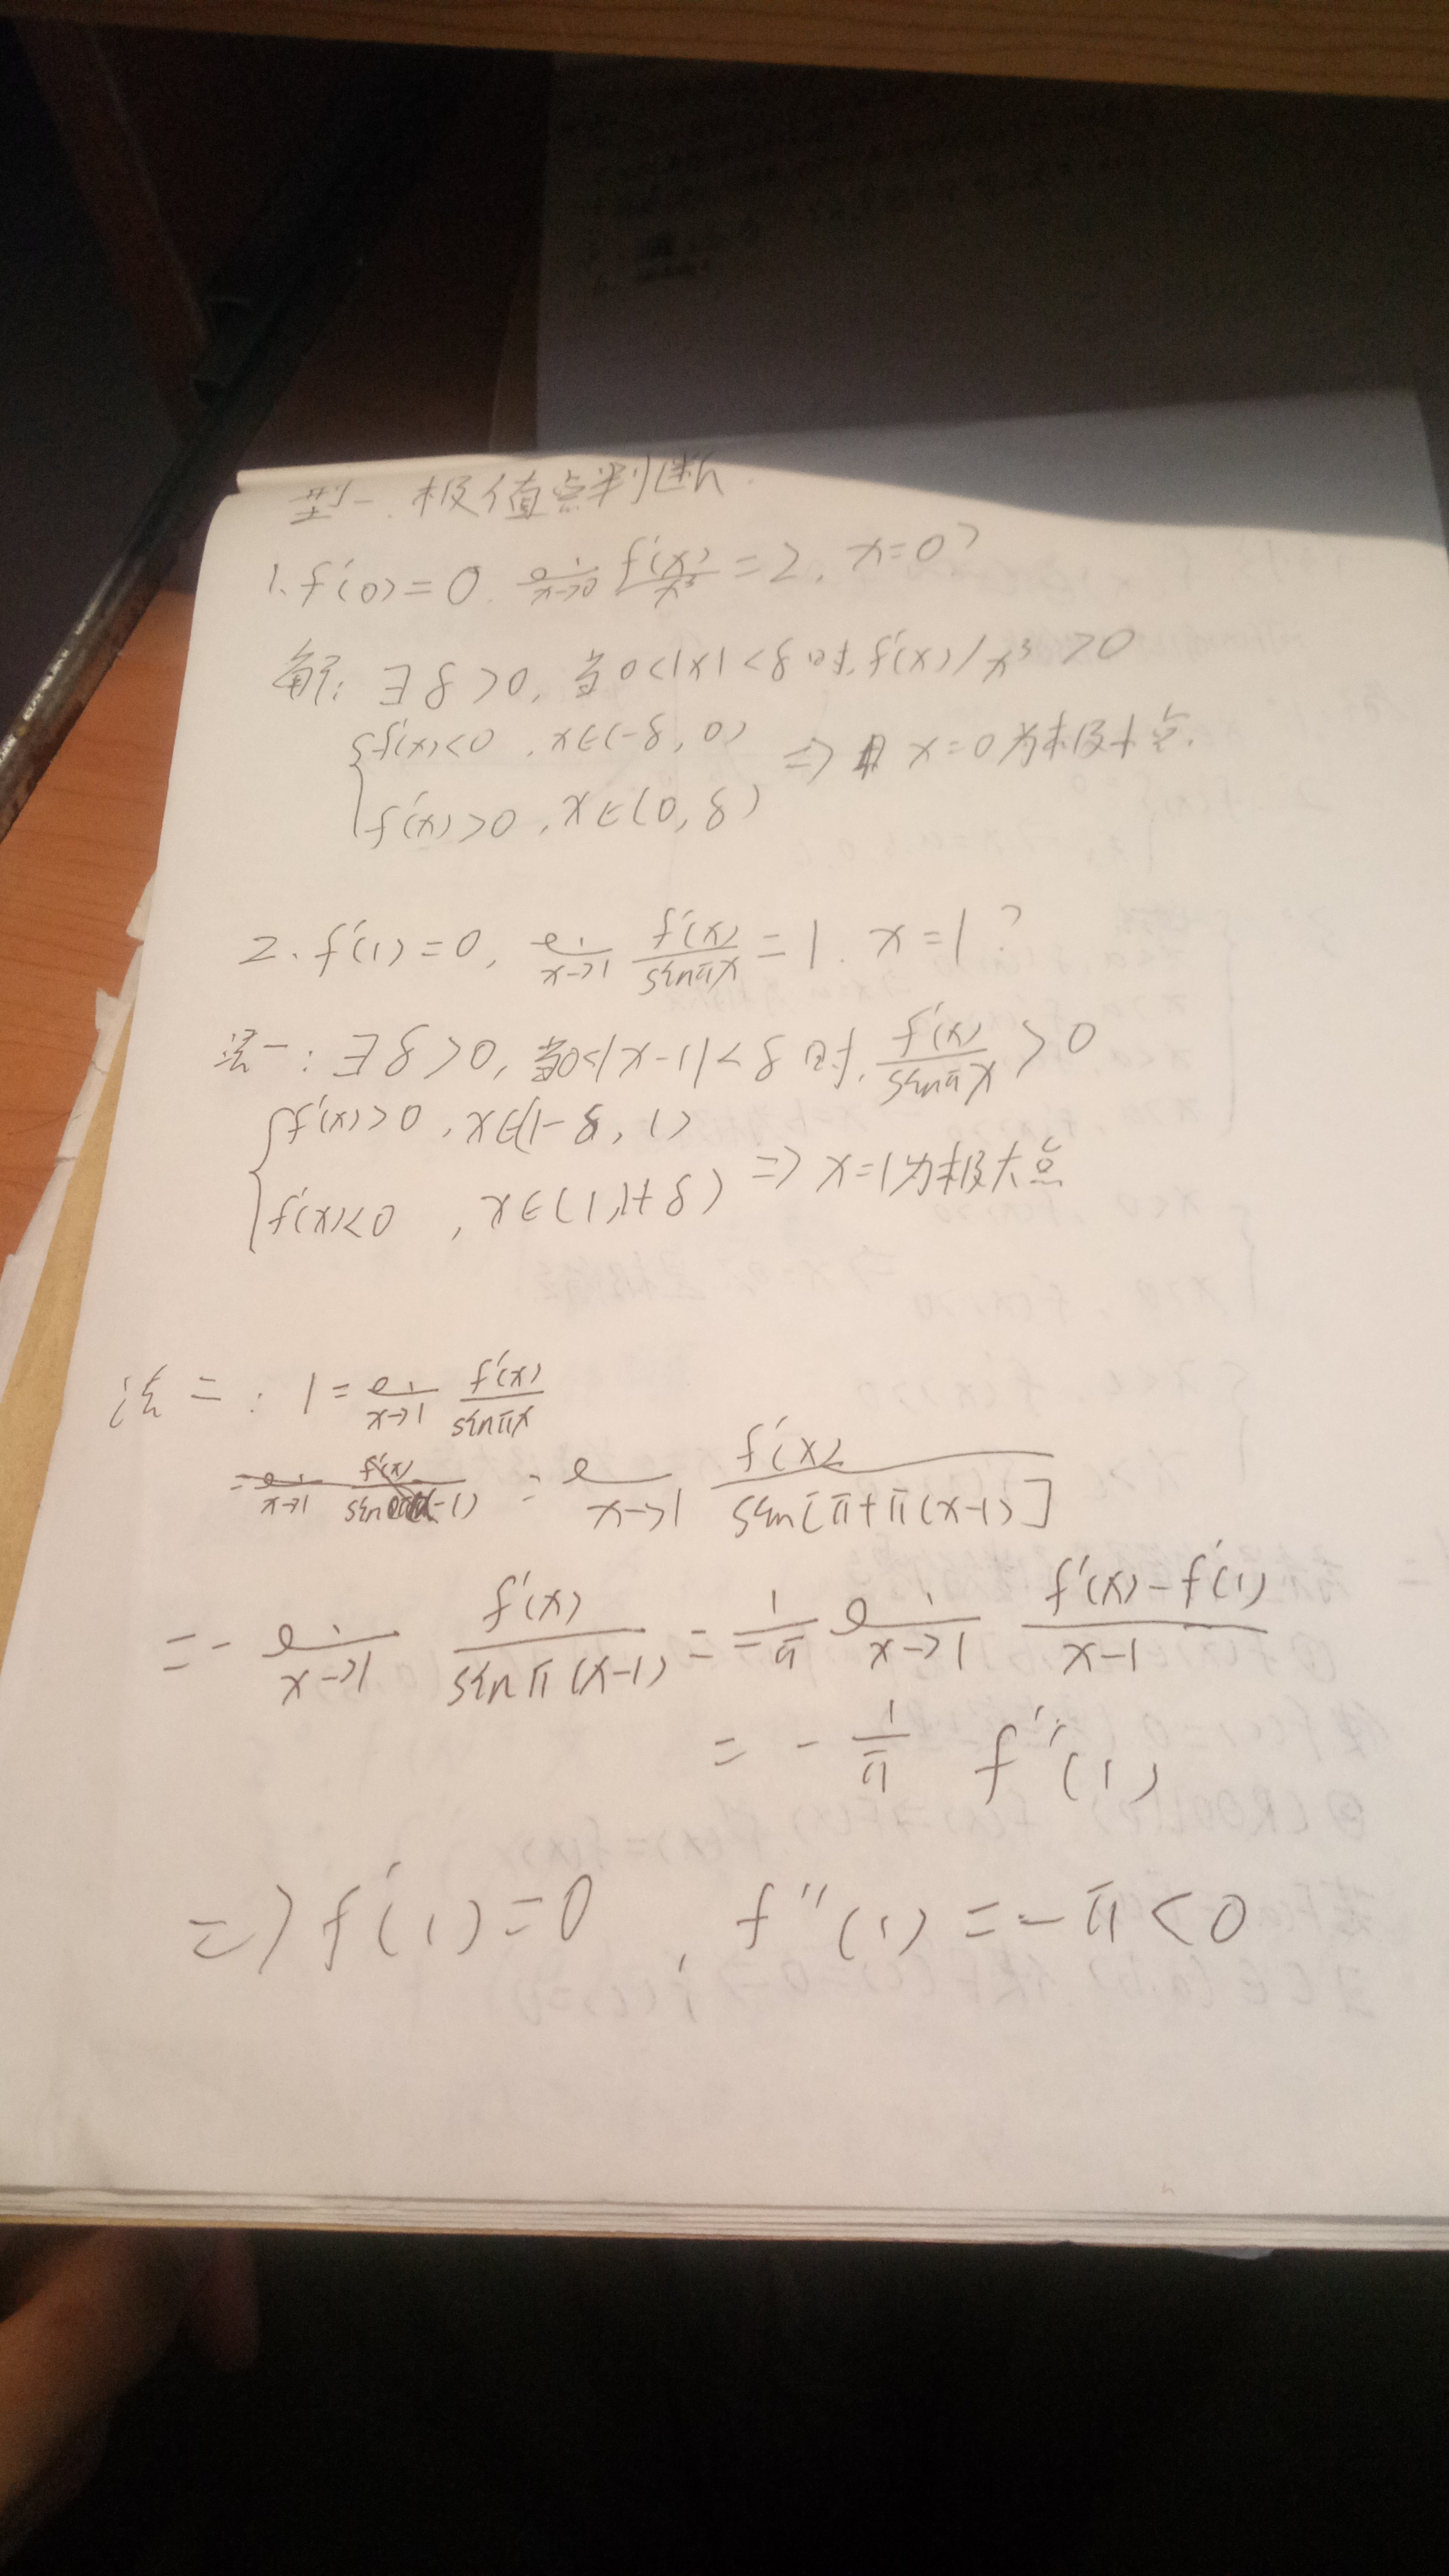 型一. 极值点判断.
1. f'(0)=0. lim x→0 f'(x)/x³ = 2. x=0?
解: ∃δ>0, 当0<|x|<δ时, f'(x)/x³>0
{ f'(x)<0, x∈(-δ, 0)
{ f'(x)>0, x∈(0, δ) ⇒ x=0为极小点.
2. f'(1)=0, lim x→1 f'(x)/sinπx = 1. x=1?
法一: ∃δ>0, 当0<|x-1|<δ时, f'(x)/sinπx > 0
{ f'(x)>0, x∈(1-δ, 1)
{ f'(x)<0, x∈(1, 1+δ) ⇒ x=1为极大点
法二: 1 = lim x→1 f'(x)/sinπx
= lim x→1 f'(x)/sin[π+π(x-1)]
= - lim x→1 f'(x)/sinπ(x-1) = -1/π lim x→1 (f'(x)-f'(1))/(x-1)
= -1/π f''(1)
⇒ f'(1)=0, f''(1)=-π<0